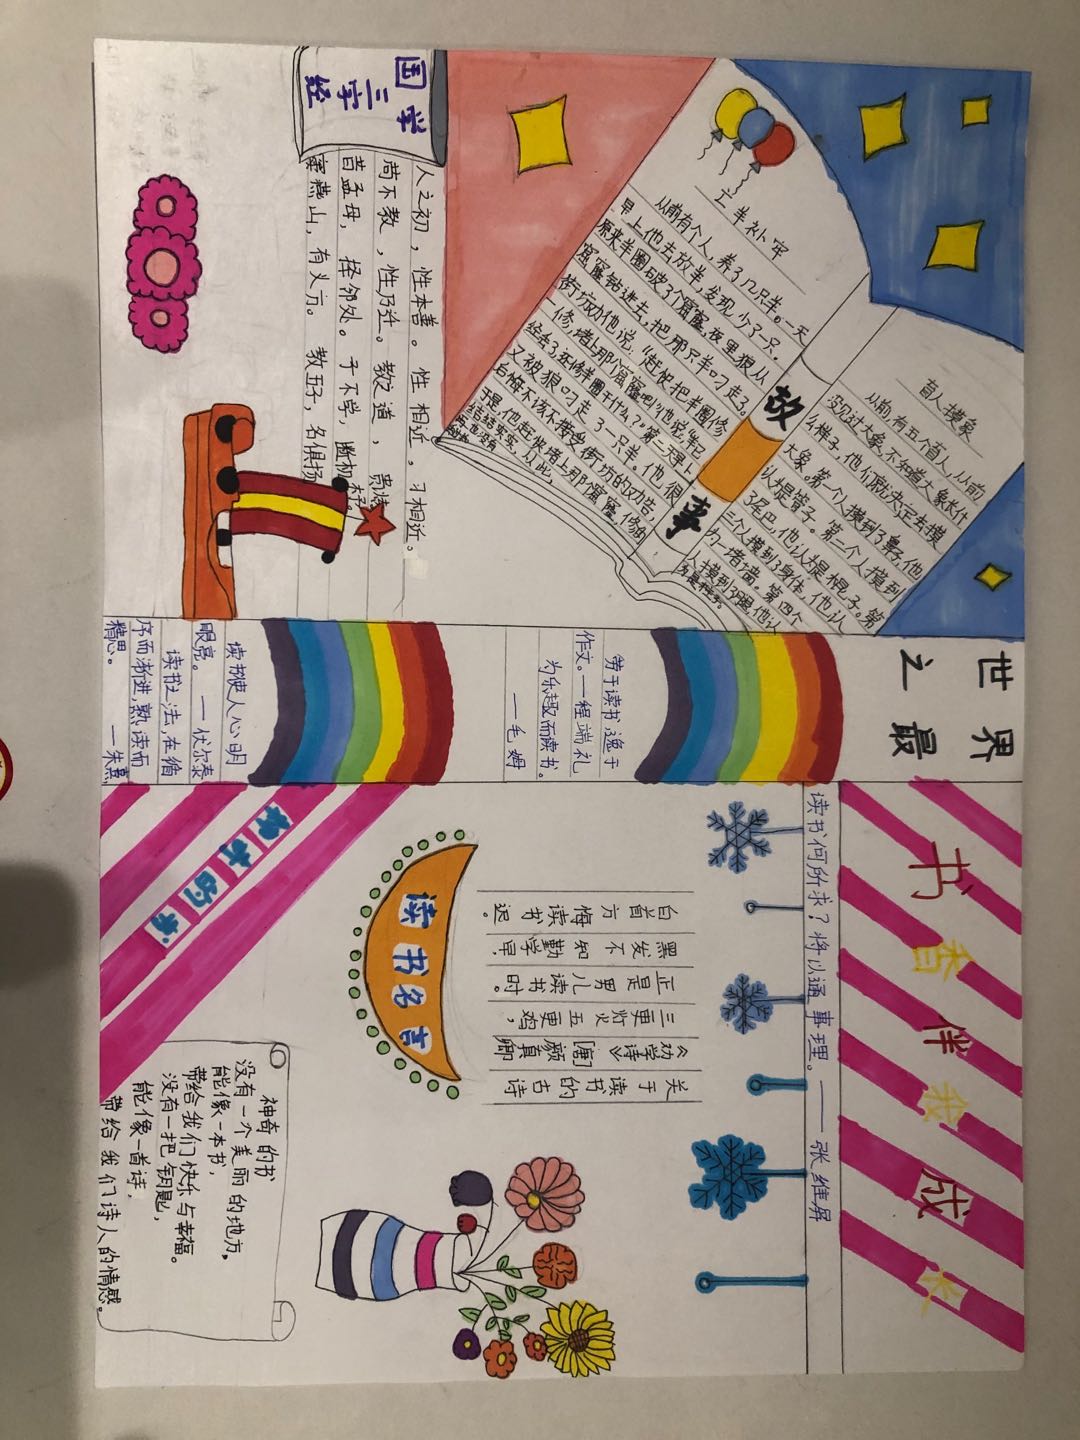 书香伴我成长
读书何所求？将以通事理。——张维屏
世界
之最
盲人摸象
从前，有五个盲人，从前
没见过大象，不知道大象长什
么样子，他们就决定去摸
大象。第一个人摸到了鼻子，他
认为是管子。第二个人摸到
了尾巴，他认为是棍子。第
三个人摸到了身体，他认
为一堵墙。第四个
人摸到了腿，他认
为是柱子。
故事
亡羊补牢
从前有个人，养了几只羊。一天
早上他去放羊，发现少了一只。
原来羊圈破了个窟窿，夜里狼从
窟窿钻进去，把那只羊叼走了。
街坊劝他说：“赶快把羊圈修
一修，堵上那个窟窿吧！”他说：“羊已
经丢了，还修羊圈干什么？”第二天早上
又被狼叼走了一只羊。他很
后悔不该不接受街坊的劝告，
于是，他赶快堵上那个窟窿，修的
结结实实，从此，
再也没有
劳于读书，逸于
作文。——程端礼
为乐趣而读书。
——毛姆
关于读书的古诗
《劝学诗》[唐]颜真卿
三更灯火五更鸡，
正是男儿读书时。
黑发不知勤学早，
白首方悔读书迟。
读书名言
国学
三字
经
人之初，性本善。性相近，习相远。
苟不教，性乃迁。教之道，贵
昔孟母，择邻处。子不学，断机杼。
窦燕山，有义方。教五子，名俱扬
读书使人心明
眼亮。——伏尔泰
读书之法，在循
序而渐进，熟读而
精思。——朱熹
神奇的书
神奇的书
没有一个美丽的地方，
能像一本书，
带给我们快乐与幸福。
没有一把钥匙，
能像一首诗，
带给我们诗人的情感。